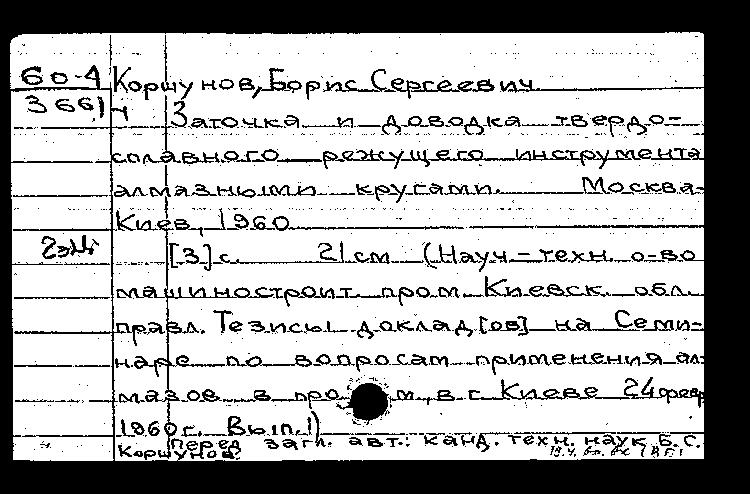 60-4
3661
Коршунов, Борис Сергеевич
Заточка и доводка твердо-
сплавного режущего инструмента
алмазными кругами. Москва-
Киев, 1960
[3] с. 21 см (Науч.-техн. о-во
машиностроит. пром. Киевск. обл.
правл. Тезисы доклад[ов] на Семи-
наре по вопросам применения ал-
мазов в про м., в г. Киеве 24 февр
1960 г. Вып. 1)
Перед загл. авт.: канд. техн. наук Б. С.
Коршунов.